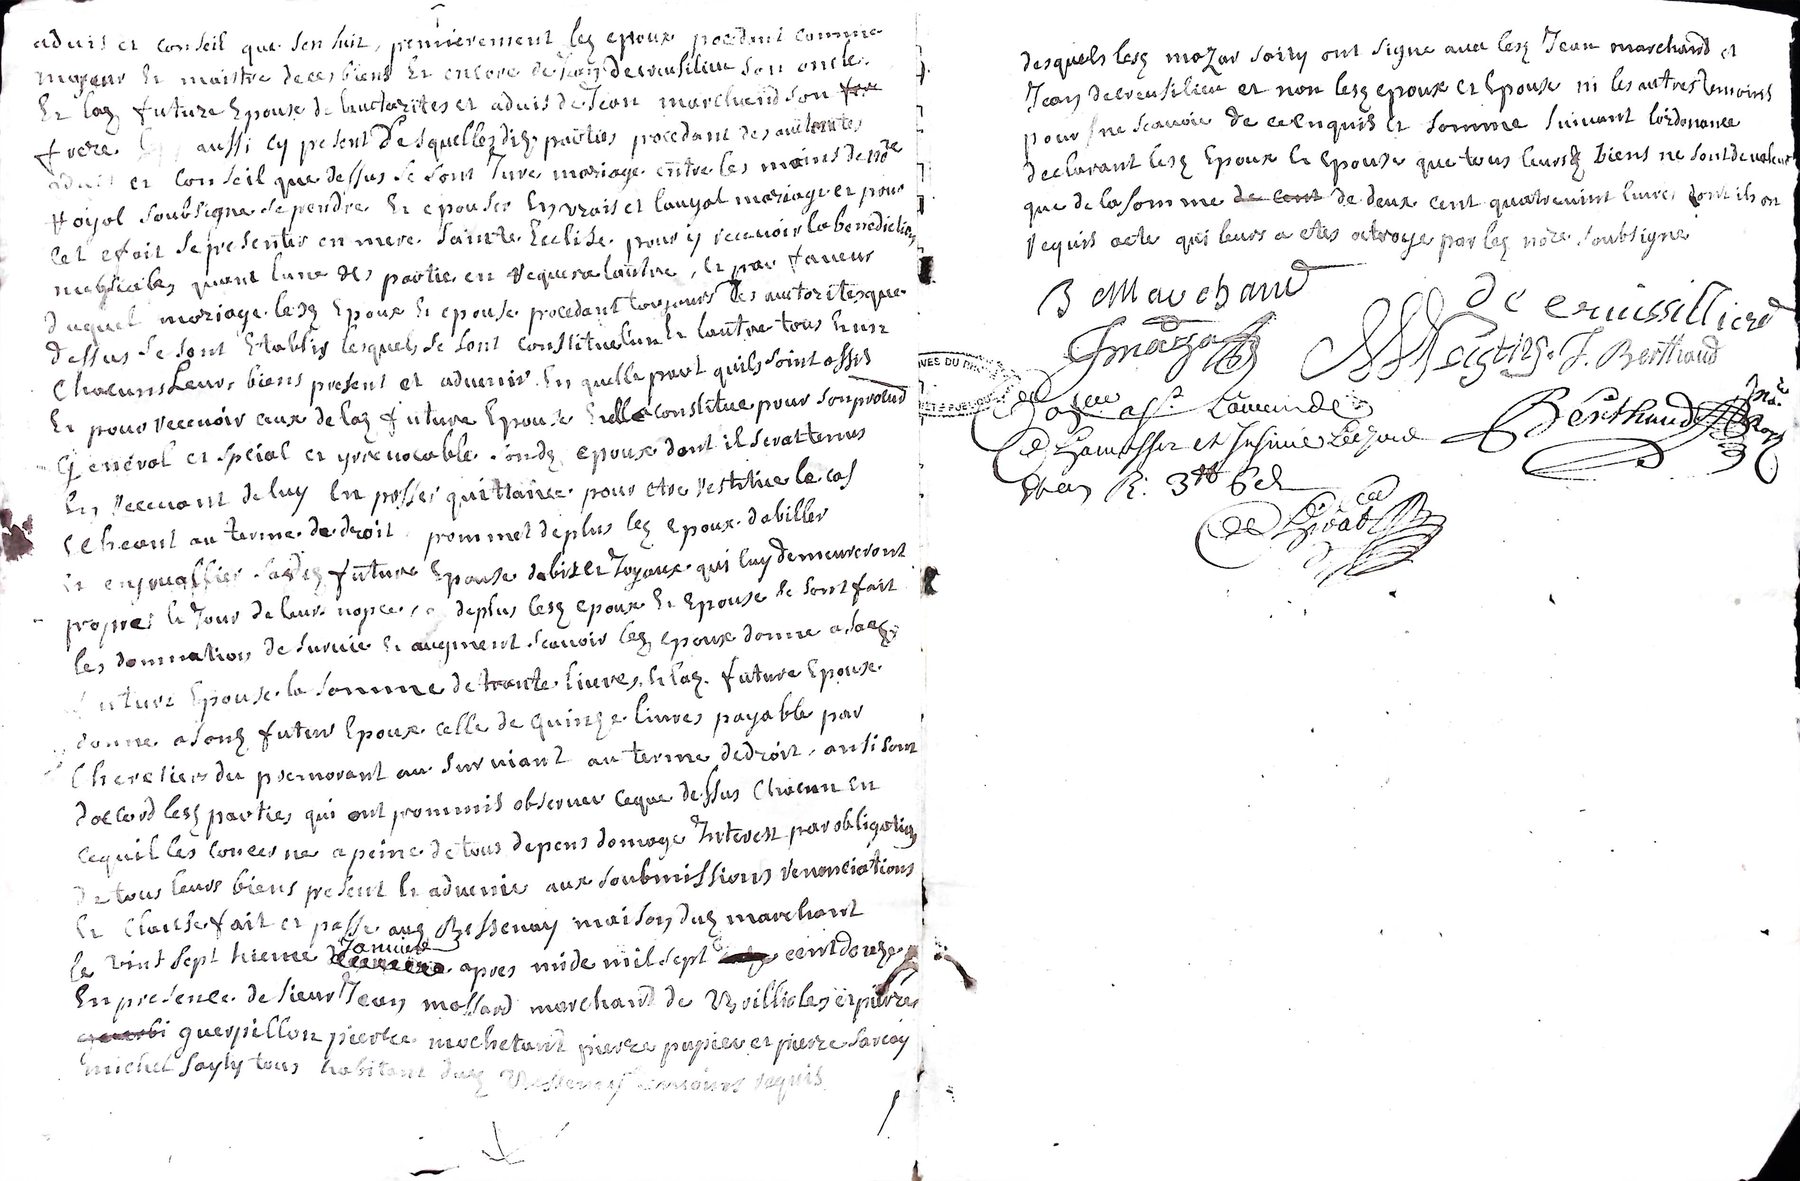 aduis et conseil que sen suit, premierement lez epoux procedant comme
majeur et maistre de ces biens et encore de Jean decreusilieu son oncle
Et laz future Epouse de lauctorites et aduis de Jean marchand son
frere aussi cy present Desquelles diz parties procedant des autorites
aduis et conseil que dessus se sont Jure mariage entre les mains de nore
Royal soubsigne se prendre Et epouser En vrais et louyal mariage et pour
cet efait se presenter en mere sainte Eeclise pour y receuoir la benediction
quant lune des partie en requera lautre, Et par faueur
duquel mariage lesz Epoux Et epouse procedant toujours des autorites que
dessus se sont Etablis lesquels se sont constitue lun et lautre tous Et un
chacuns Leurs biens present et aduenir En quelle part quils soint assis
Et pour receuoir ceux de laz future Epouse Elle constitue pour son procud
general et special et yrreuocable sondz epoux dont il serat tenus
En receuant de luy En passer quittance pour etre restitue le cas
echeant au terme de droit, prommet de plus lez epoux dabiller
Et enjouallier sadz future Epouse dabis et Joyaux qui luy demeureront
propres le Jour de leur nopce, de plus lesz epoux Et Epouse se sont fait
les donnation de suruie Et augment scauoir lez epoux donne a saz
future Epouse la somme de trante liures, Et laz future Epouse
donne a sonz futur Epoux celle de quinze liures payable par
lheretier du premorant au suruiant au terme de droit, ansi sont
dacord lesz parties qui ont prommis obseruer ceque dessus chacun En
cequil les concerne a peine de tous depens domage Interest par obligation
De tous leurs biens present Et aduenir aux soubmissions renonciations
Et clause fait et passe auz Ressenay maison duz marchant
le vint sept hieme Januier apres mide mil sept cent douze
En presence de sieur Jean massard marchand de et pierre
guerpillon pierre mochetant pierre papier et pierre
michel sayly tous habitant duz temoins requis
desquels lesz mozar sarry ont signe auec lesz Jean marchand et
Jean decreusilieu et non lesz epoux et Epouse ni les autres temoins
pour ne scauoir de ce enquis et somme suiuant lordonance
declarant lesz Epoux Et Epouse que tous leursz biens ne sont de valeur
que de la somme de cent de deux cent quatreuint liures dont ils on
requis acte qui leurs a etes octroye par lez nore soubsigne
Marchand
de creussillieu
J. Berthaud
Berthaud